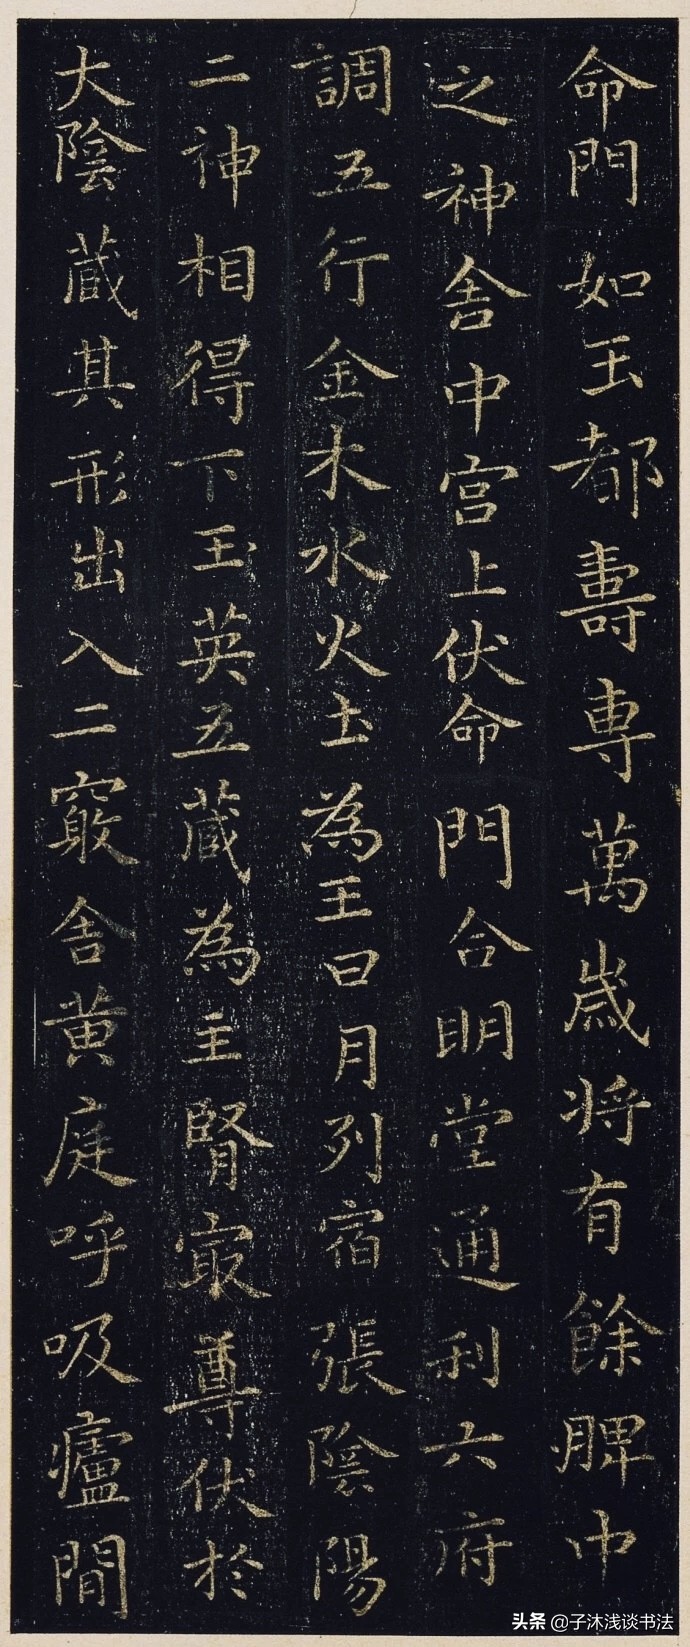 命門如玉都壽專萬歲将有餘脾中
之神舍中宫上伏命門合明堂通利六府
調五行金木水火土為王日月列宿張陰陽
二神相得下玉英五蔵為主腎寂尊伏於
大陰蔵其形出入二竅舍黄庭呼吸廬間
头条 @子沐浅谈书法